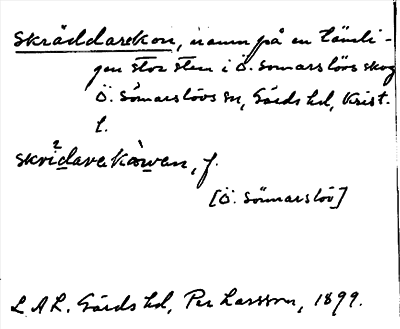 Skräddarekon, namn på en tämli-
gen stor sten i Ö. Sömarslövs skog
Ö. Sömarslövs sn, Gärds hd, Krist.
l.
skrìdarekàwen, f.
[Ö. Sönnarslöv]
L.A.L. Gärds hd, Per Larsson, 1899.